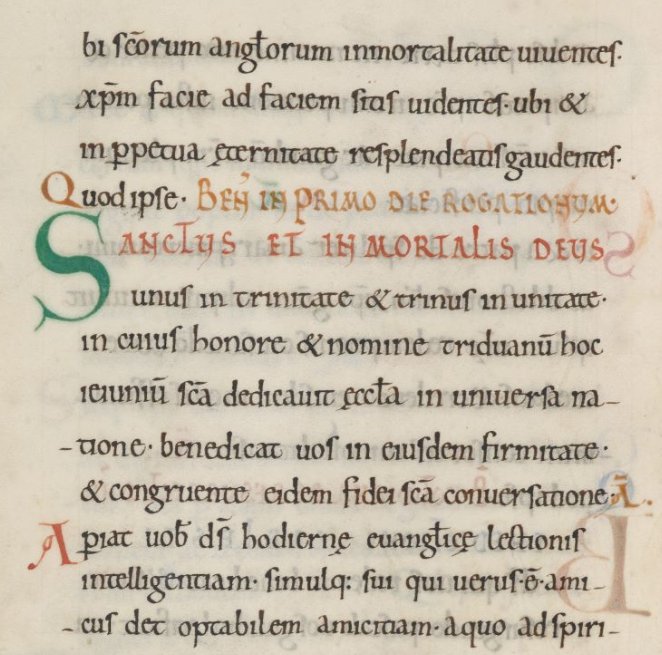 bi sc̄orum angłorum inmortalitate uiuentes.
xp̄m facie ad faciem sitis uidentes· ubi &
in ꝑpetua ęternitate resplendeatis gaudentes.
Quod ipse· BEN̄ IN PRIMO DIE ROGATIONUM·
SANCTUS ET INMORTALIS DEUS
unus in trinitate & trinus in unitate·
in cuius honore & nomine triduanū hoc
ieiuniū sc̄a dedicauit ęccła in uniuersa na-
-tione· benedicat uos in eiusdem firmitate·
& congruente eidem fidei sc̄a conuersatione· Ā.
Aꝑiat uob̄ ds̄ hodiernę euangłicę lectionis
intelligentiam· simulq: sui qui uerus· ē· ami-
-cus det optabilem amicitiam· a quo adspiri-